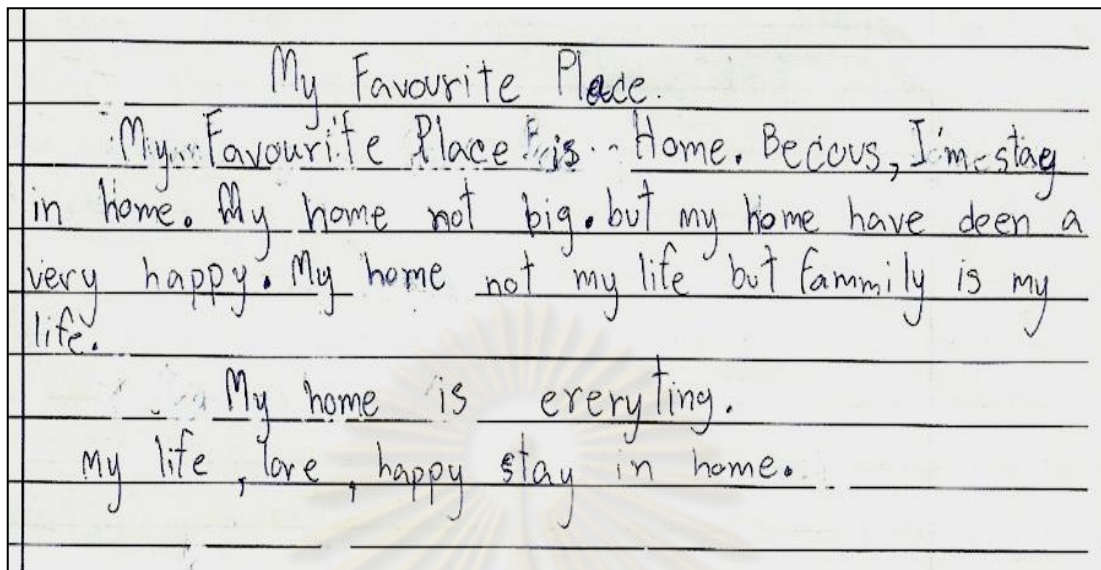 My Favourite Place.
My Favourite Place is Home. Becous, I'm stay
in home. My home not big. but my home have deen a
very happy. My home not my life but fammily is my
life.
My home is everyting.
My life, love, happy stay in home.